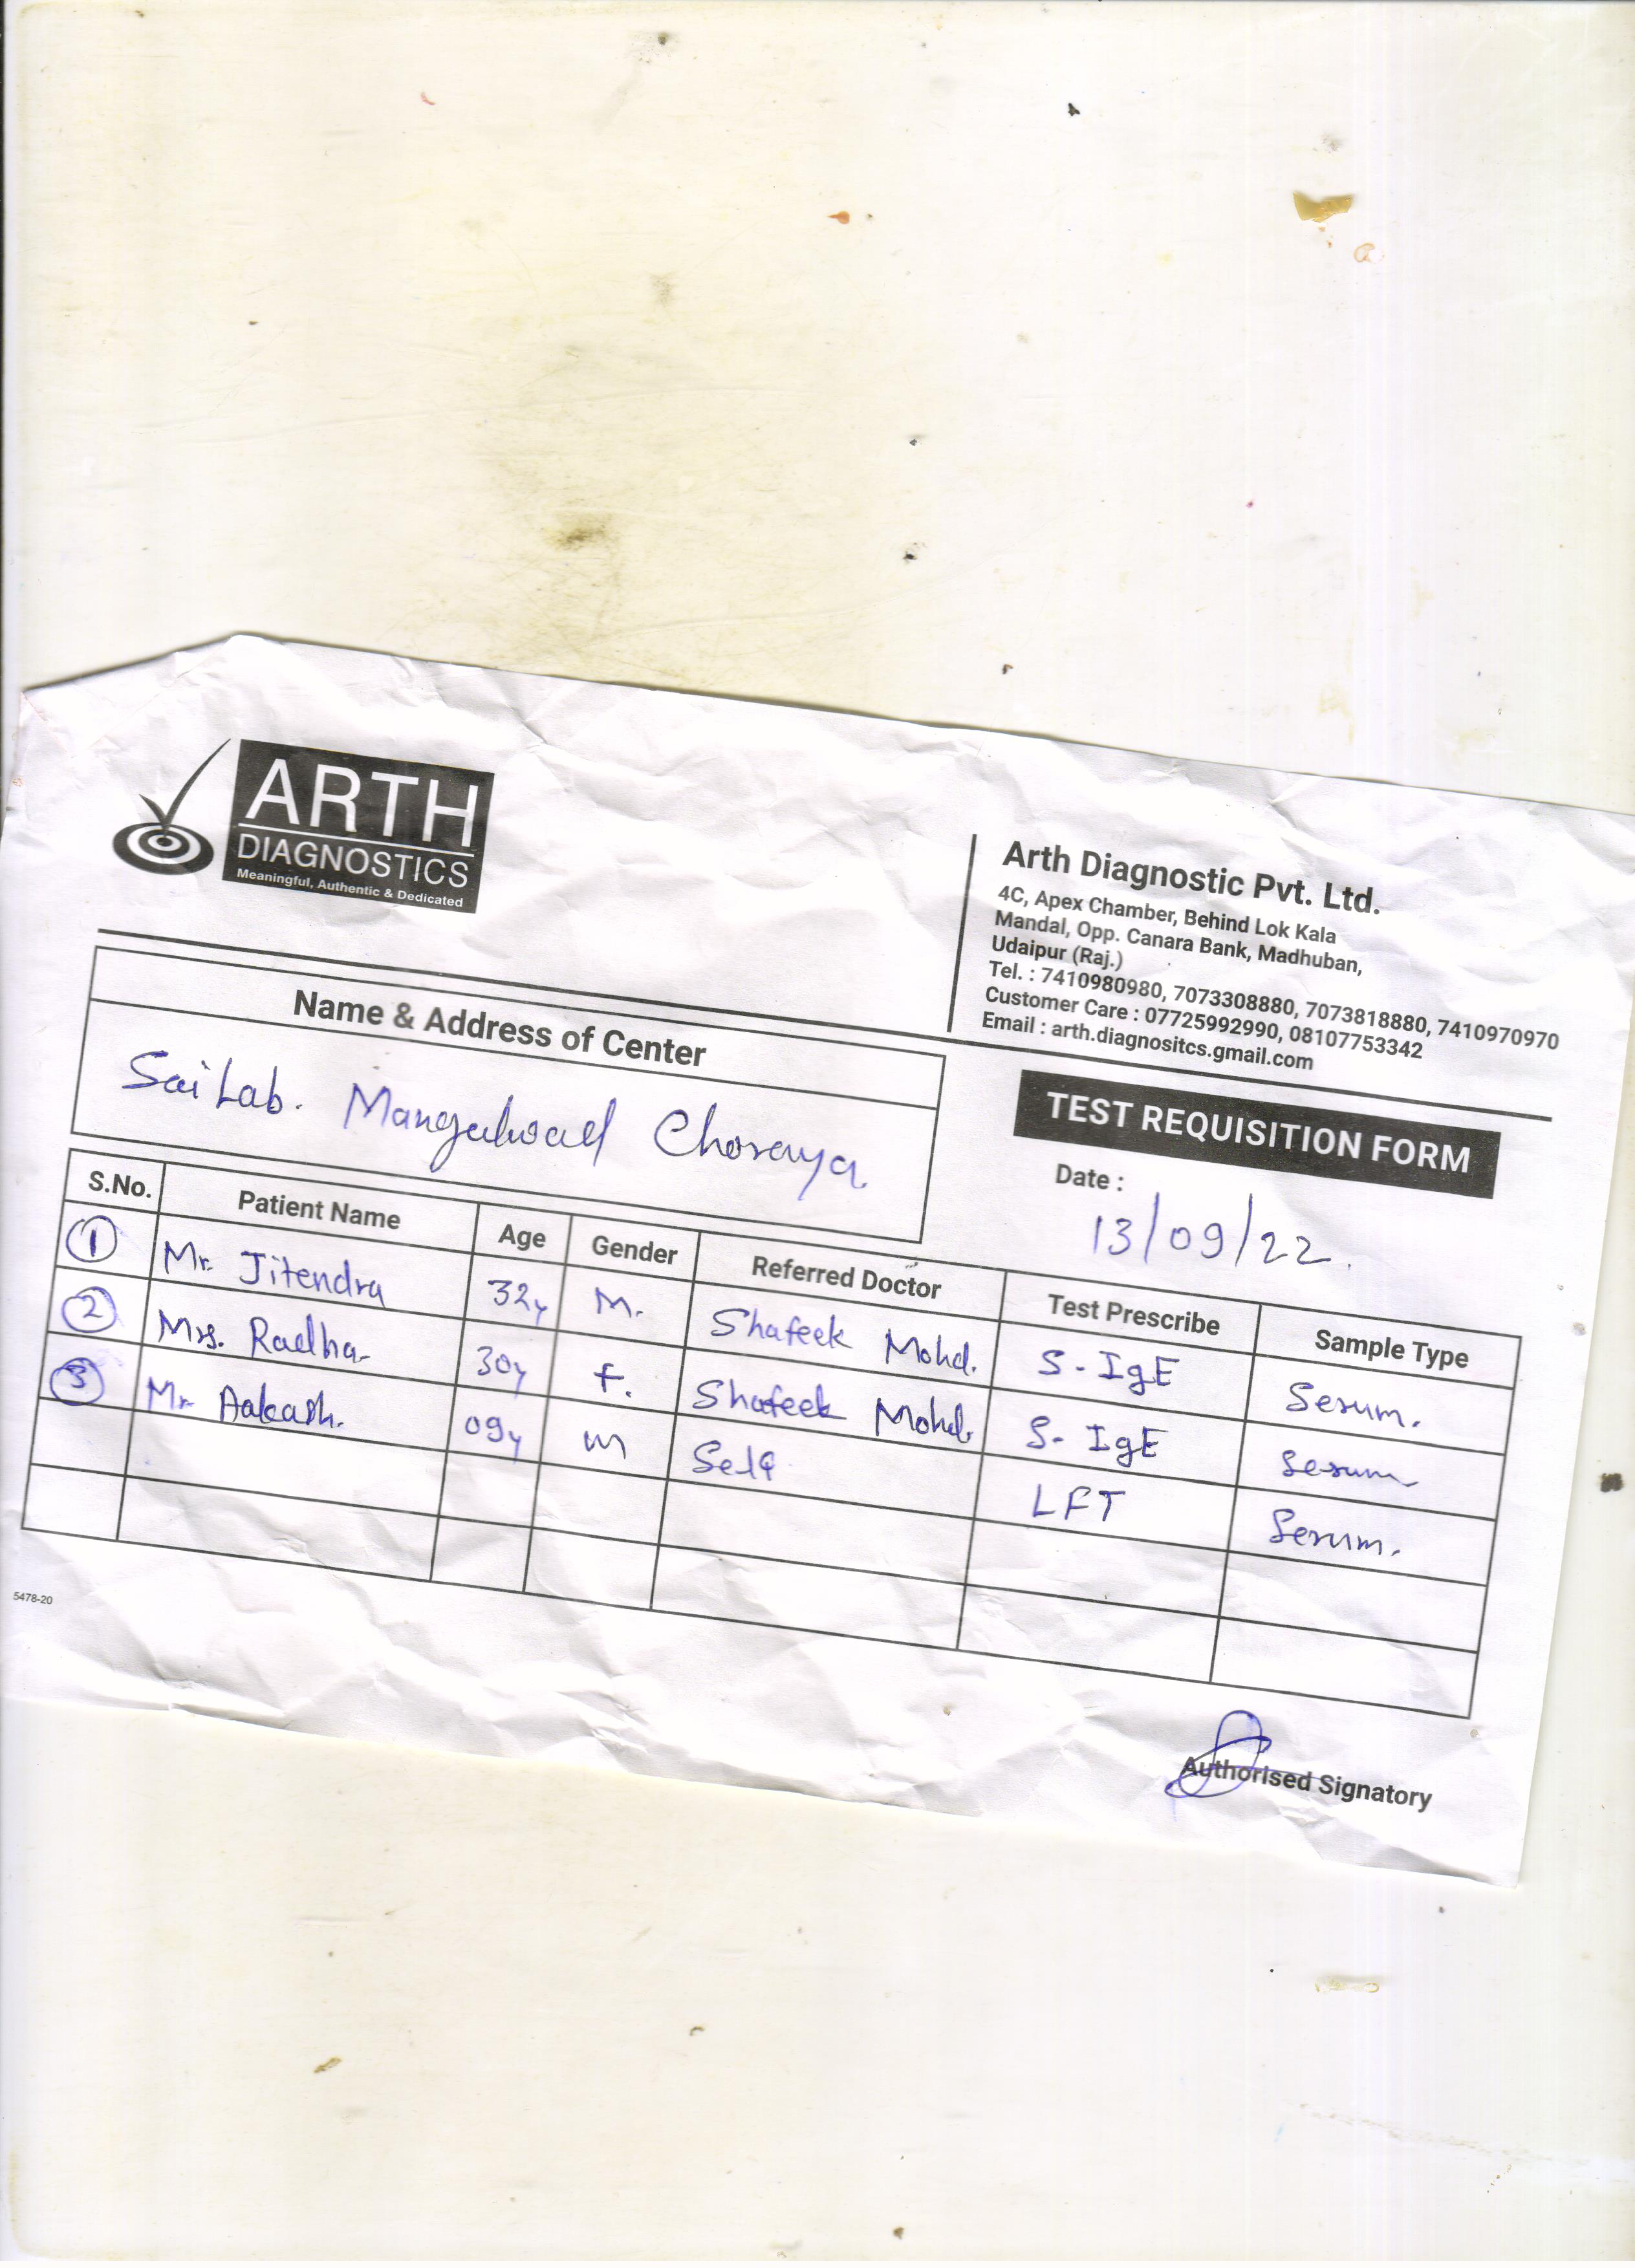 ARTH
DIAGNOSTICS
Meaningful, Authentic & Dedicated
Arth Diagnostic Pvt. Ltd.
4C, Apex Chamber, Behind Lok Kala
Mandal, Opp. Canara Bank, Madhuban,
Udaipur (Raj.)
Tel. : 7410980980, 7073308880, 7073818880, 7410970970
Customer Care : 07725992990, 08107753342
Email : arth.diagnositcs.gmail.com
Name & Address of Center
Sai Lab. Mangalwad Choraya
TEST REQUISITION FORM
Date :
13/09/22.
S.No. Patient Name Age Gender Referred Doctor Test Prescribe Sample Type
1 Mr. Jitendra 32y M. Shafeek Mohd. S-IgE Serum.
2 Mrs. Radha 30y F. Shafeek Mohd. S-IgE Serum
3 Mr Aakash. 09y M Self LFT Serum.
5478-20
Authorised Signatory